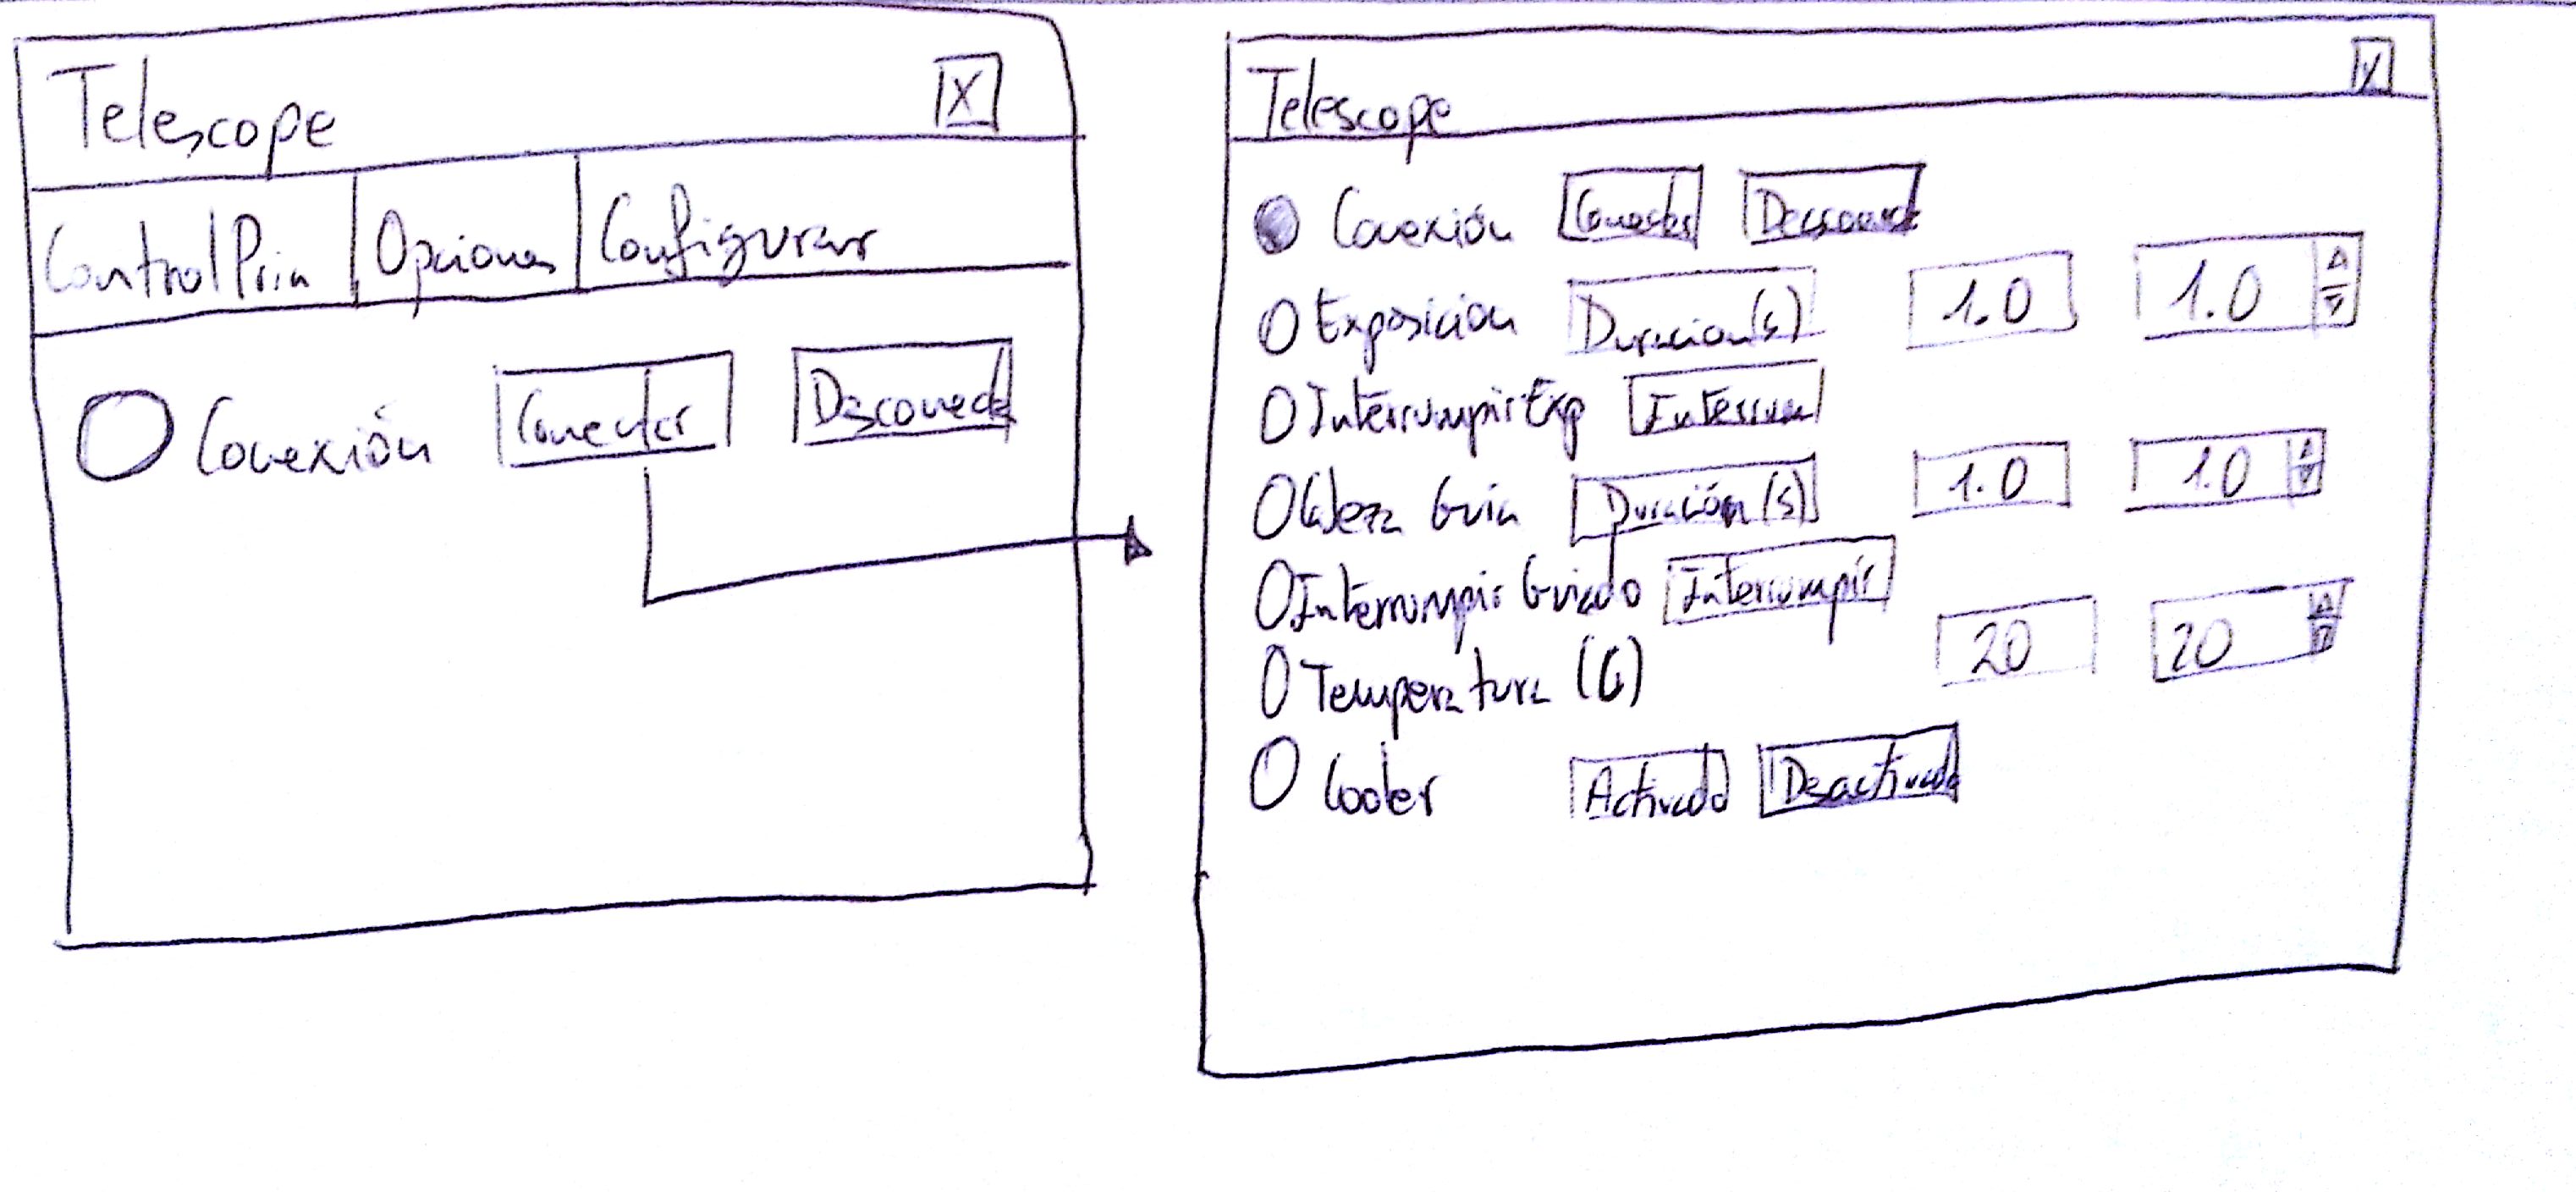 Telescope X
Control Prin Opciones Configurar
Conexión Conectar Desconecta
Telescope X
Conexión Conectar
Exposición Duracion(s) 1.0 1.0
InterrumpirExp Interrum
Guia Duración(s) 1.0 1.0
Interrumpir Guiado Interrumpir
Temperatura (C) 20 20
Cooler Activado Desactivado